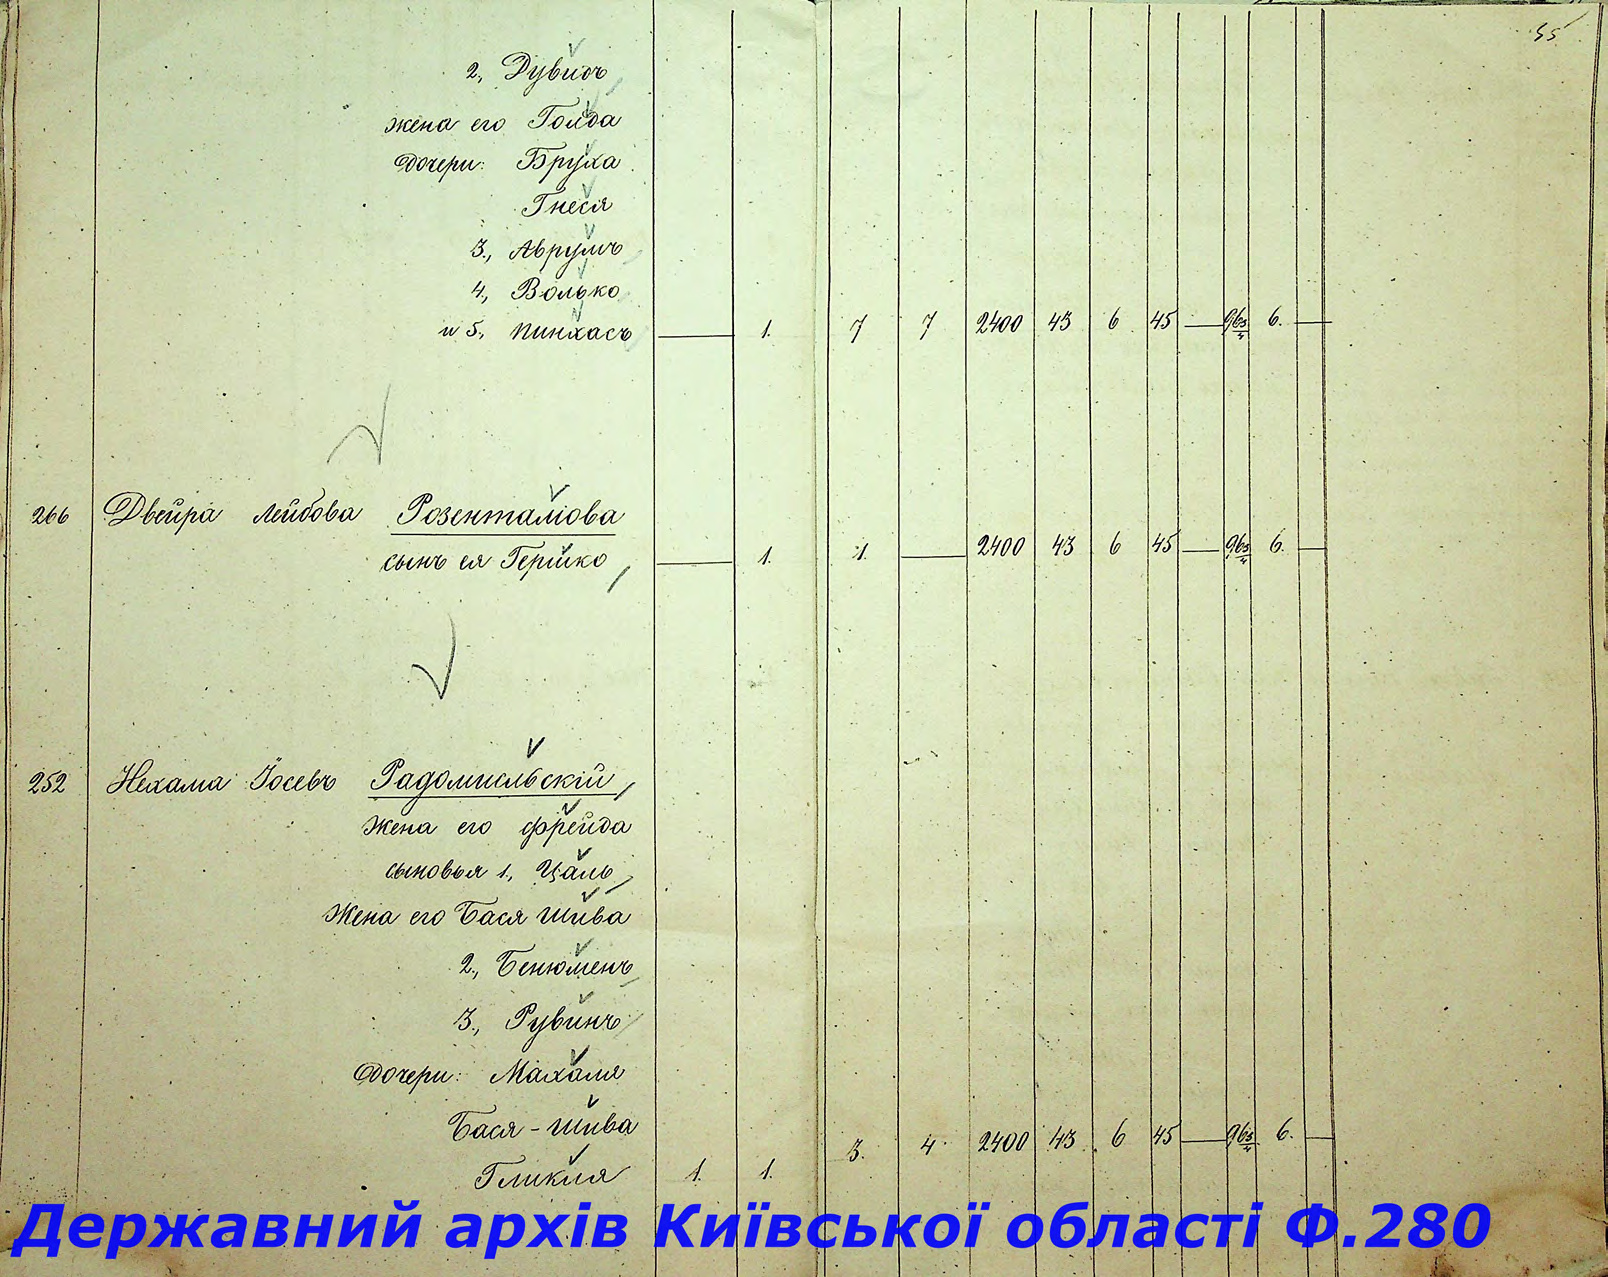 55
2., Дувидъ
жена его Голда
Дочери: Бруха
Гнеся
3., Аврумъ
4., Волько
и 5., Пинхасъ — 1. 7 7 2400 43 6 45 — 96 3/4 6. —
266 Двейра Лейбова Розенталіова
сынъ ея Гершко — 1. 1. — 2400 43 6 45 — 96 3/4 6. —
252 Нехама Іосевъ Радомисльскій
Жена его Фрейда
сыновья 1., Цаль
Жена его Бася Шива
2., Бенюменъ
3., Рувинъ
Дочери: Махаля
Бася-Шива 3. 4 2400 43 6 45 — 96 3/4 6. —
Гликля 1. 1.
Державний архів Київської області Ф.280